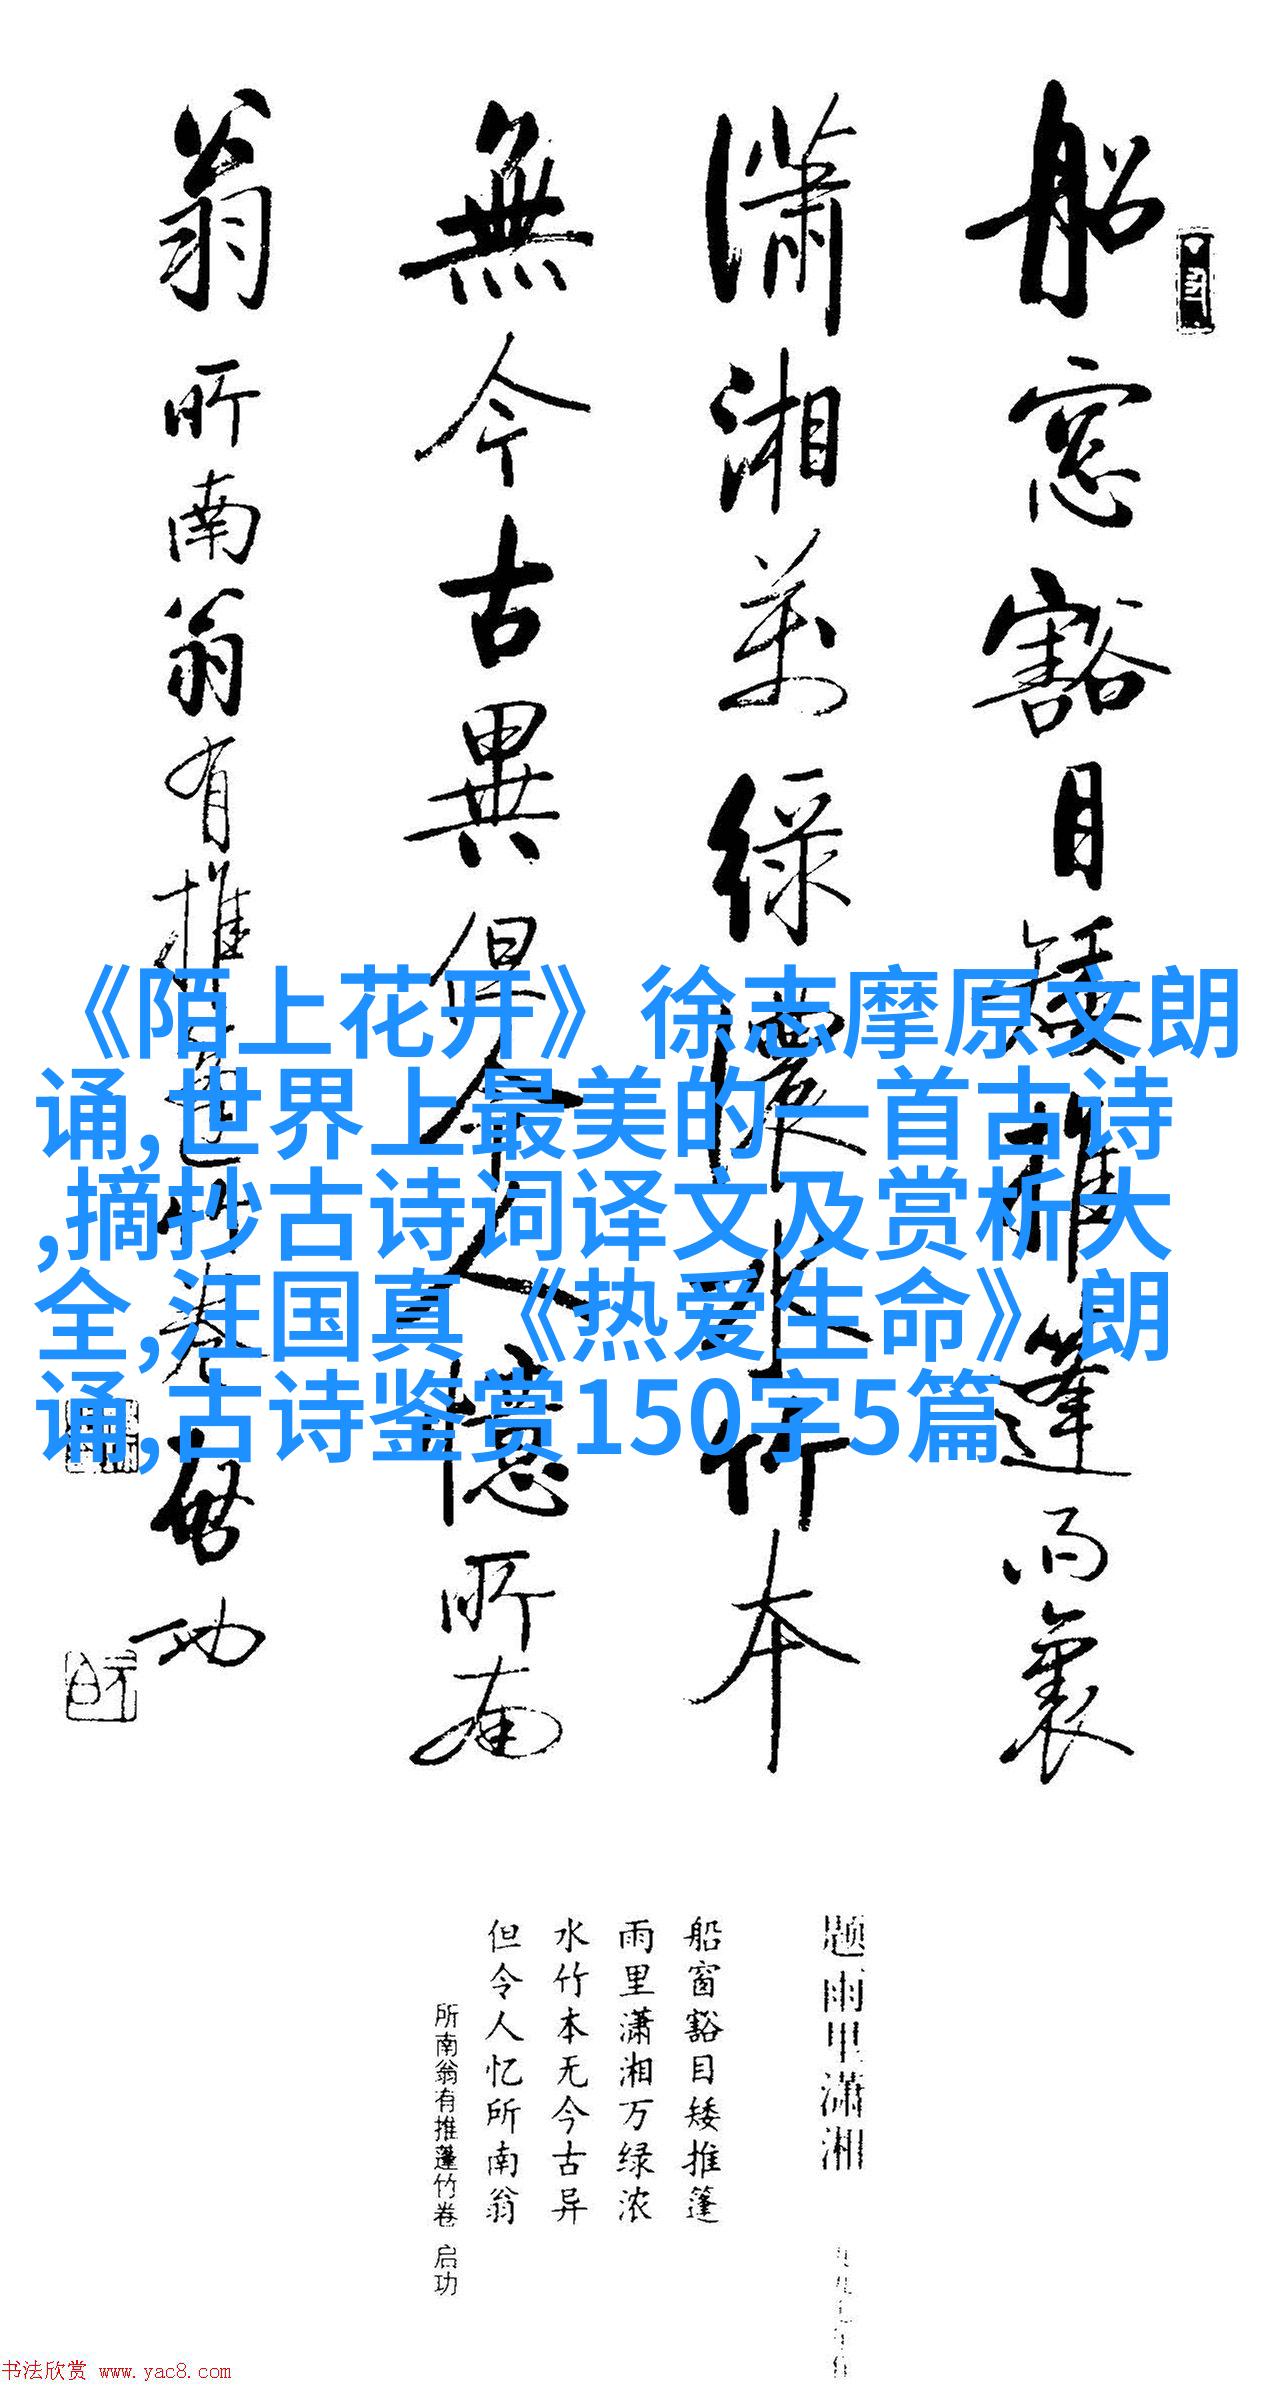 船窗豁目矮推篷雨里
潇湘萬緑濃水竹本
無今古異但令人憶所南
翁 所南翁有推篷竹卷 启功
《陌上花开》徐志摩原文朗
诵,世界上最美的一首古诗
,摘抄古诗词译文及赏析大
全,汪国真《热爱生命》朗
诵,古诗鉴赏150字5篇
题雨里潇湘
船窗豁目矮推篷
雨里潇湘万绿浓
水竹本无今古异
但令人忆所南翁
所南翁有推篷竹卷 启功
书法欣赏 www.yac8.com